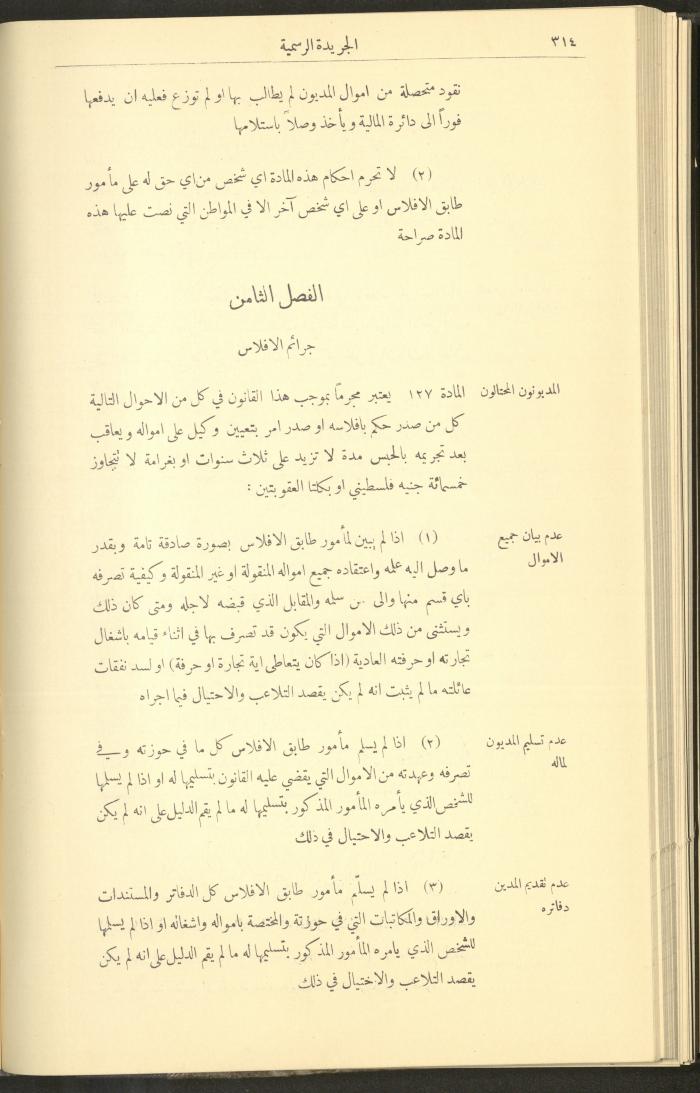 ٣١٤
الجريدة الرسمية
نقود متحصلة من اموال المديون لم يطالب بها او لم توزع فعليه ان يدفعها
فوراً الى دائرة المالية ويأخذ وصلاً باستلامها
(٢) لا تحرم احكام هذه المادة اي شخص من اي حق له على مأمور
طابق الافلاس او على اي شخص آخر الا في المواطن التي نصت عليها هذه
المادة صراحة
الفصل الثامن
جرائم الافلاس
المديونون المحتالون
المادة ١٢٧ يعتبر مجرماً بموجب هذا القانون في كل من الاحوال التالية
كل من صدر حكم بافلاسه او صدر امر بتعيين وكيل على امواله ويعاقب
بعد تجريمه بالحبس مدة لا تزيد على ثلاث سنوات او بغرامة لا تتجاوز
خمسمائة جنيه فلسطيني او بكلتا العقوبتين :
عدم بيان جميع
الاموال
(١) اذا لم يبين لمأمور طابق الافلاس بصورة صادقة تامة وبقدر
ما وصل اليه علمه واعتقاده جميع امواله المنقولة او غير المنقولة وكيفية تصرفه
باي قسم منها والى من سلمه والمقابل الذي قبضه لاجله ومتى كان ذلك
ويستثنى من ذلك الاموال التي يكون قد تصرف بها في اثناء قيامه باشغال
تجارته او حرفته العادية (اذا كان يتعاطى اية تجارة او حرفة) او لسد نفقات
عائلته ما لم يثبت انه لم يكن يقصد التلاعب والاحتيال فيما اجراه
عدم تسليم المديون
لماله
(٢) اذا لم يسلم مأمور طابق الافلاس كل ما في حوزته وفي
تصرفه وعهدته من الاموال التي يقضي عليه القانون بتسليمها له او اذا لم يسلمها
للشخص الذي يأمره المأمور المذكور بتسليمها له ما لم يقم الدليل على انه لم يكن
يقصد التلاعب والاحتيال في ذلك
عدم تقديم المدين
دفاتره
(٣) اذا لم يسلّم مأمور طابق الافلاس كل الدفاتر والمستندات
والاوراق والمكاتبات التي في حوزتة والمختصة بامواله واشغاله او اذا لم يسلمها
للشخص الذي يامره المأمور المذكور بتسليمها له ما لم يقم الدليل على انه لم يكن
يقصد التلاعب والاختيال في ذلك